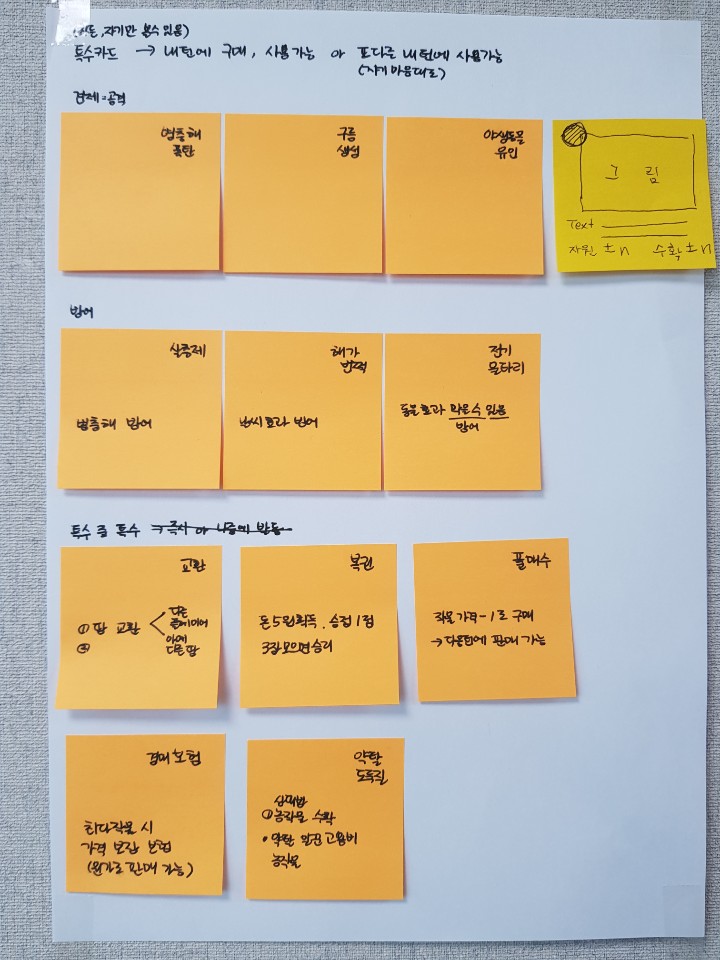 자기만 볼수 있음)
특수카드 → 내턴에 구매, 사용가능 or 또다른 내턴에 사용가능
(자기마음대로)
견제=공격
병충해
폭탄
구름
생성
야생동물
유인
그림
Text
자원 ±n 수확 ±n
방어
살충제
병충해 방어
해가
반짝
날씨효과 방어
전기
울타리
동물효과 막을수 있음
방어
특수 중 특수 → 즉시 or 나중에 반동
교환
① 땅 교환
다른
플레이어
아예
다른땅
②
복권
돈5원획득, 승점1점
3장모으면승리
풀매수
작물가격-1로 구매
→다음턴에 판매 가능
경매보험
하다작물 시
가격 보장 보험
(원가로 판매 가능)
약탈
도둑질
상대방
① 농작물 수확
• 약탈 일꾼고용비
농작물